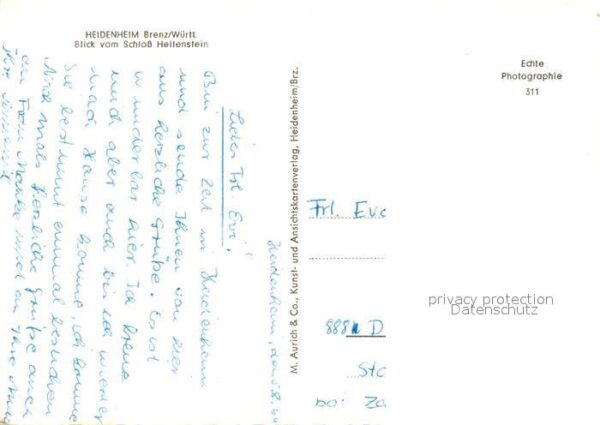 HEIDENHEIM Brenz/Württ.
Blick vom Schloß Hellenstein
Echte
Photographie
311
M. Aurich & Co., Kunst- und Ansichtskartenverlag, Heidenheim/Brz.
Heidenheim, den
Liebes Frl. Evi!
Bin zur Zeit in Heidenheim
und sende Ihnen von hier
aus herzliche Grüße. Es ist
wunderbar hier. Ich
mich aber auch bis ich wieder
nach Hause komme, ich komme
Sie bestimmt einmal besuchen
Nochmals herzliche Grüße auch
an Frau und an Ihre
Ihre
Frl. Eve
888 D
Sta
bei: Za
privacy protection
Datenschutz